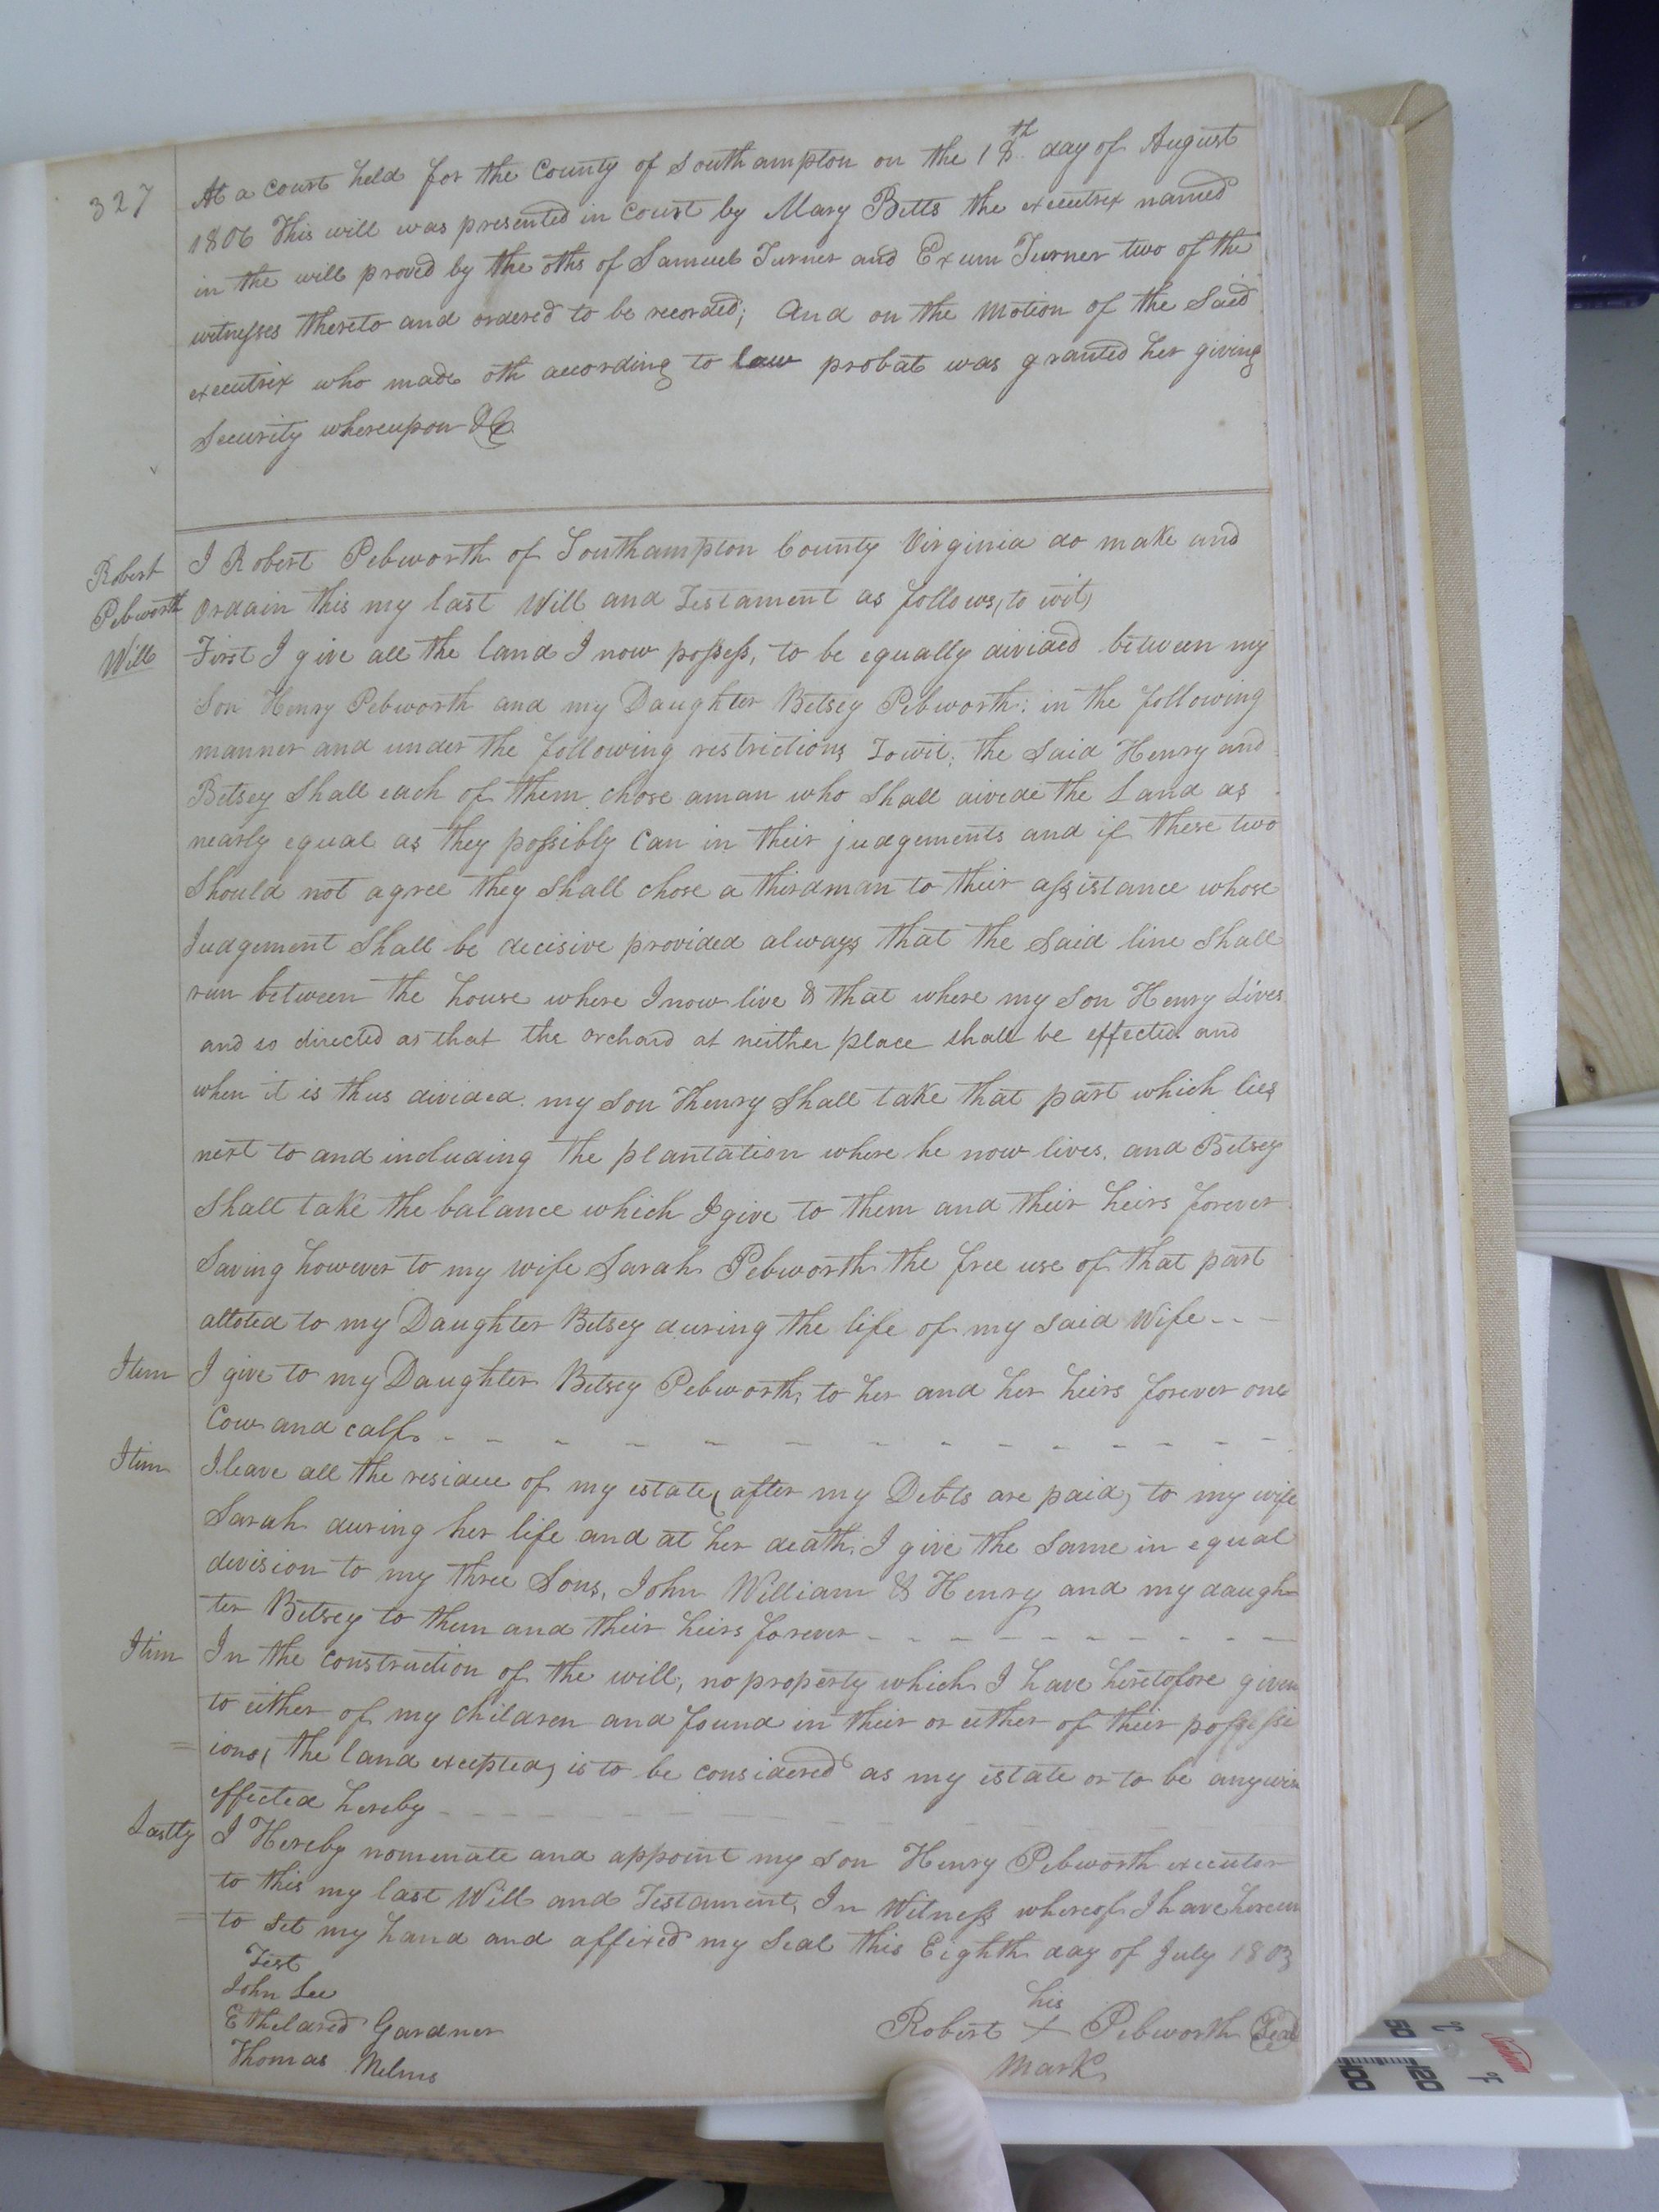 327
At a court held for the County of Southampton on the 18th day of August
1806 This will was presented in court by Mary Betts the executrix named
in the will proved by the oths of Samuel Turner and Exum Turner two of the
witnesses thereto and ordered to be recorded; And on the Motion of the Said
executrix who made oth according to law probat was granted her giving
Security whereupon &c
Robert
Pebworth
Will
I Robert Pebworth of Southampton County Virginia do make and
Ordain this my last Will and Testament as follows, (to wit)
First I give all the land I now possess, to be equally divided between my
Son Henry Pebworth and my Daughter Betsey Pebworth; in the following
manner and under the following restrictions Towit; the Said Henry and
Betsey Shall each of them chose a man who Shall divide the Land as
nearly equal as they possibly Can in their judgements and if these two
Should not agree they Shall chose a third man to their assistance whose
Judgement Shall be decisive provided always that the said line Shall
run between the house where I now live & that where my Son Henry Lives
and so directed as that the orchard at neither place shall be effected and
when it is thus divided my Son Henry Shall take that part which lies
next to and including the plantation where he now lives, and Betsey
Shall take the balance which I give to them and their heirs forever
Saving however to my wife Sarah Pebworth the free use of that part
alloted to my Daughter Betsey during the life of my said Wife - - -
Item I give to my Daughter Betsey Pebworth, to her and her heirs forever one
Cow and calf - - - - - - - - - - - -
Item I leave all the residue of my estate (after my Debts are paid) to my wife
Sarah during her life and at her death, I give the Same in equal
division to my three Sons, John William & Henry and my daugh-
ter Betsey to them and their heirs forever - - - - - - - - - -
Item In the construction of the will, no property which I have heretofore given
to either of my children and found in their or either of their possessi
=ions (the land excepted) is to be considered as my estate or to be anywise
effected hereby - - - - - - -
Lastly I Hereby nominate and appoint my son Henry Pebworth executor
to this my last Will and Testament, In Witness whereof I have hereun
=to set my hand and affixed my Seal this Eighth day of July 1803
Test
John Lee
Etheldred Gardner
Thomas Melms
his
Robert X Pebworth Seal
Mark